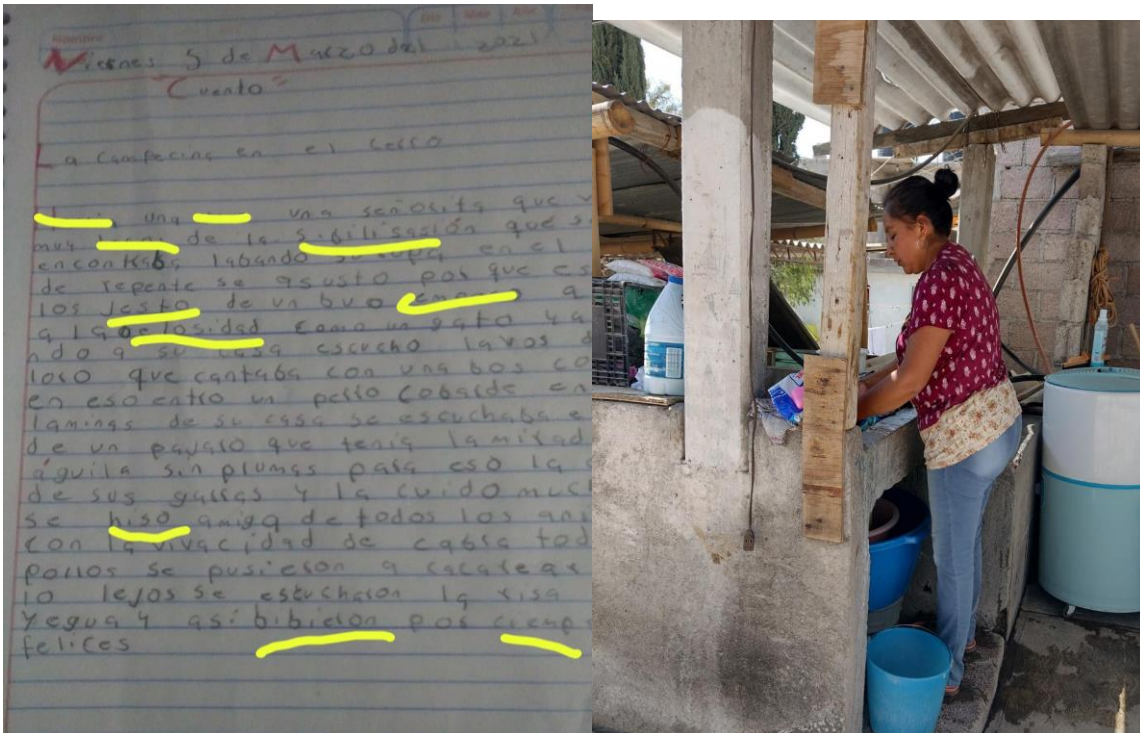 Nombre Día Mes Año
Viernes 5 de Marzo del 2021
"Cuento"
La campecina en el cerro
una una señorita que
muy de la sibilisasión que s
encontraba labando su ropa en el
de repente se asusto por que es
los jesto de un buo a
a la belosidad como un gato y a
ndo a su casa escucho la vos d
loro que cantaba con una bos co
en eso entro un perro cobarde en
laminas de su casa se escuchaba e
de un pajaro que tenia la mirad
águila sin plumas para eso la
de sus garras y la cuido muc
se hiso amiga de todos los ani
con la vivacidad de cabra tod
pollos se pusieron a cacarear
lo lejos se estucharon la risa
yegua y asi bibieron por ciemp
felices